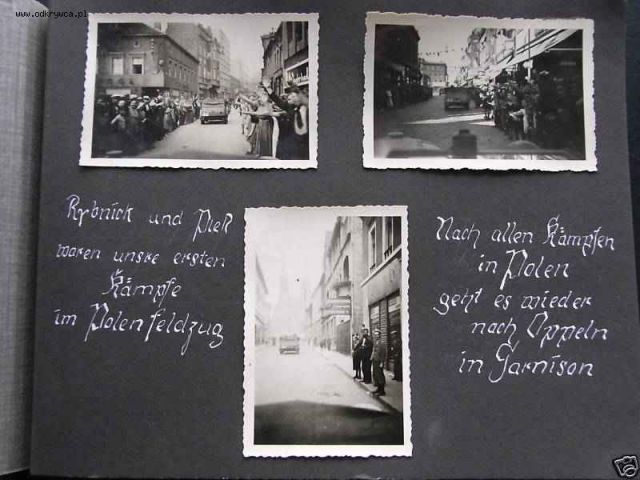 www.odkrywca.pl
Rybnick und Pleß
waren unsre ersten
Kämpfe
im Polenfeldzug
Nach allen Kämpfen
in Polen
geht es wieder
nach Oppeln
in Garnison